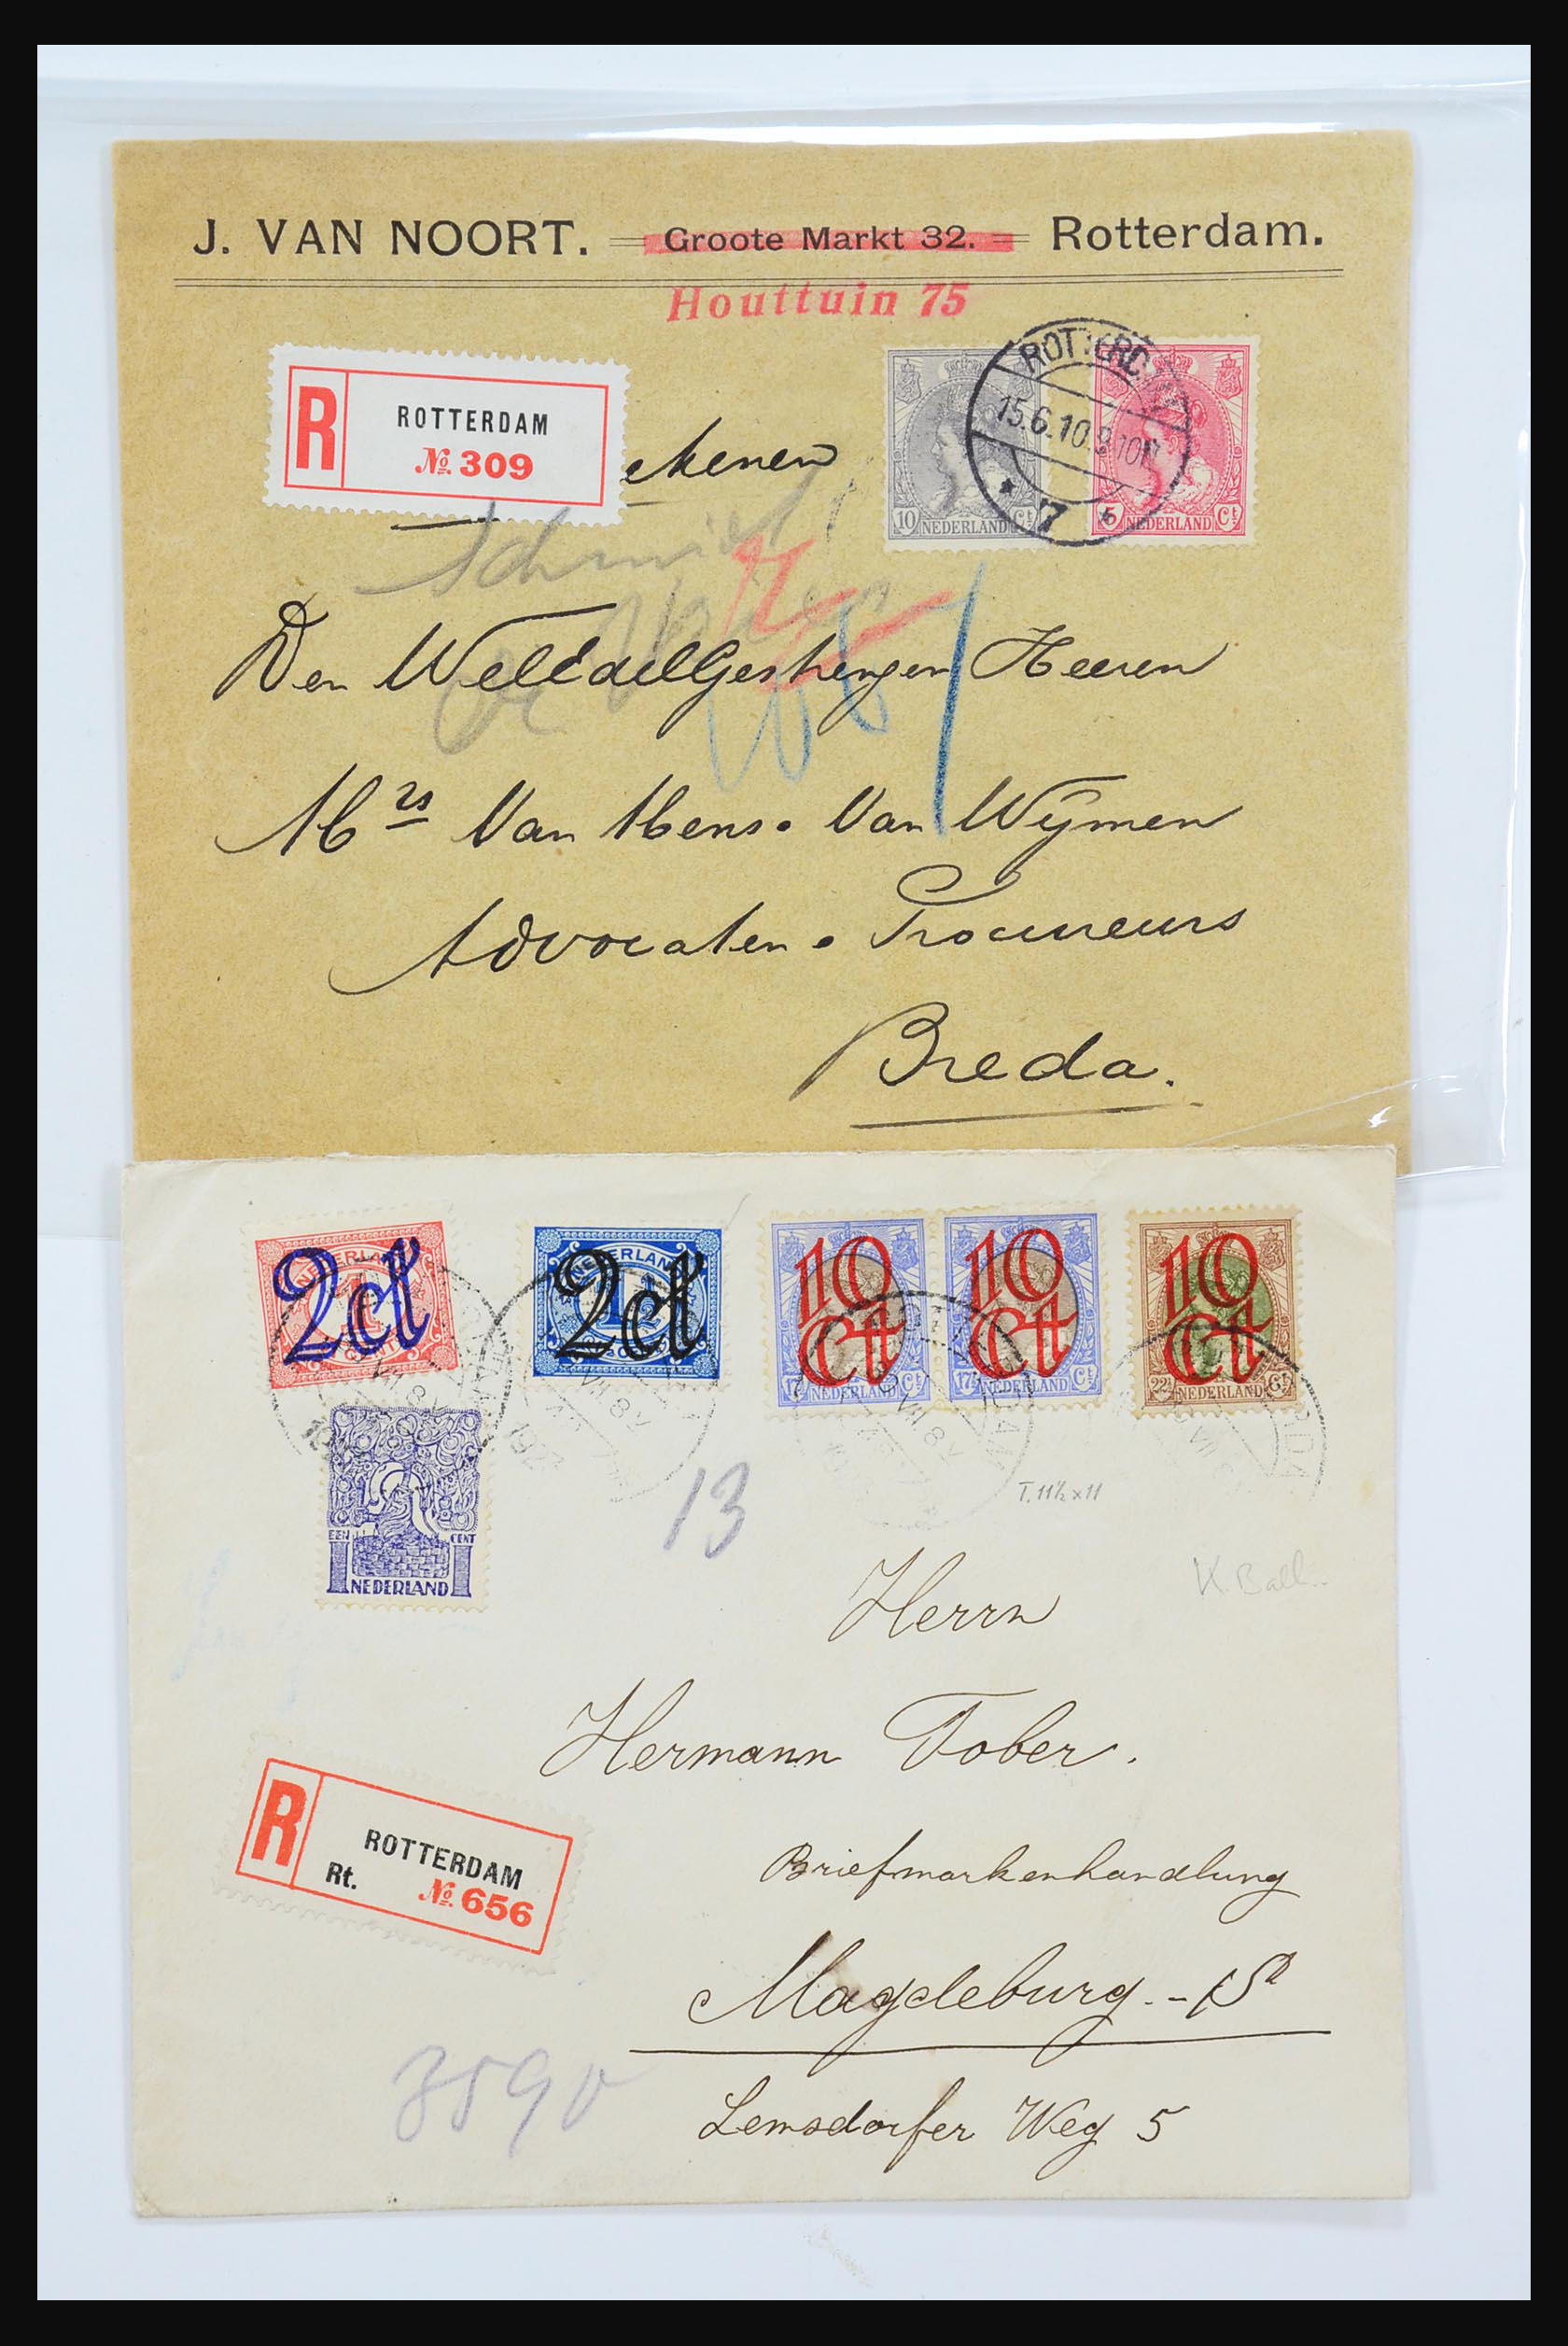 J. VAN NOORT. Groote Markt 32. Rotterdam.
Houttuin 75
R ROTTERDAM
№ 309
ekenen
10 NEDERLAND Ct
5 NEDERLAND Ct
ROTTERDAM
15.6.10.
7
Den WelEdelGestrengen Heeren
Mrs Van Mens. Van Wijmen
Advocaten. Procureurs
Breda.
NEDERLAND
2ct
CENT
NEDERLAND
2ct
10 Ct
17½ NEDERLAND Ct
10 Ct
17½ NEDERLAND Ct
10 Ct
22½ NEDERLAND Ct
EEN CENT
1 NEDERLAND 1
13
T. 11½ x 11
Herrn
Hermann Tober.
Briefmarkenhandlung
R ROTTERDAM
Rt. № 656
Magdeburg. -
Lemsdorfer Weg 5